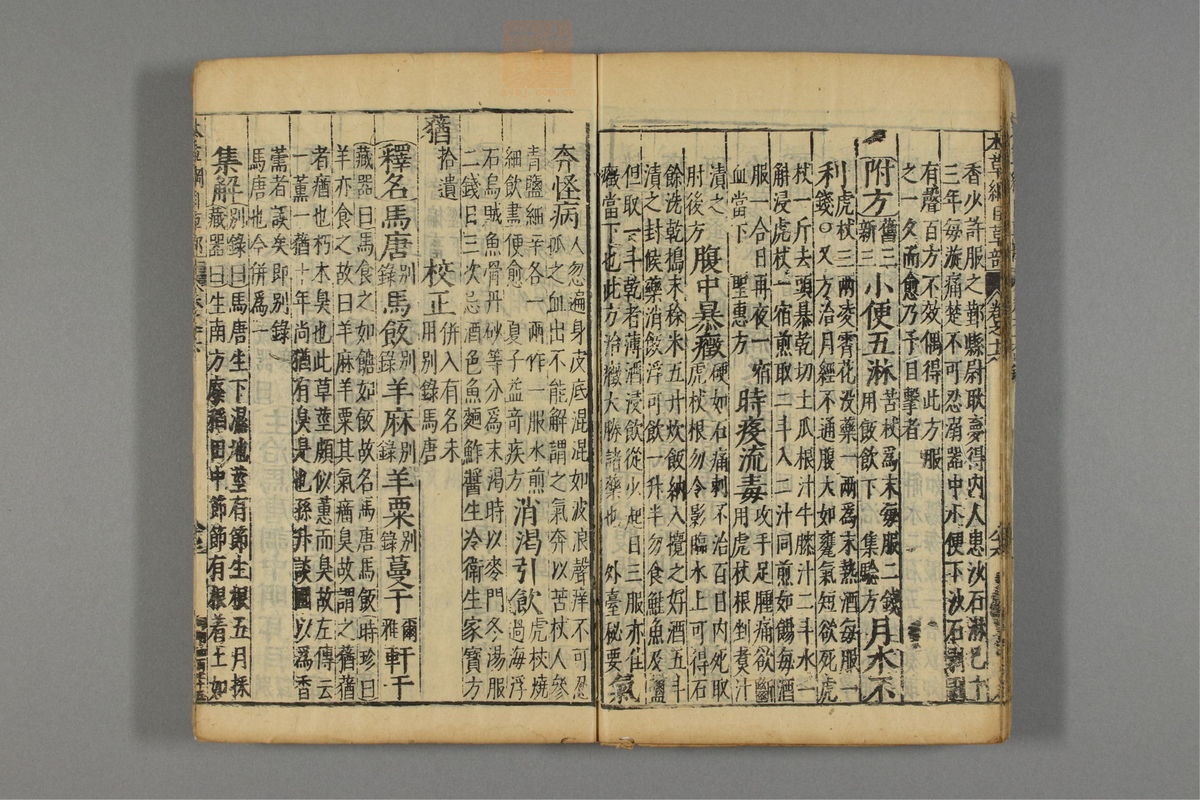 本草綱目草部 卷之十六
香少許服之鄞縣尉耿夢得內人患沙石淋已十
三年每漩痛楚不可忍溺器中小便下沙石剝剝
有聲百方不效偶得此方服
之一夕而愈乃予目擊者
附方舊三新三小便五淋苦杖爲末每服二錢用飯飲下集驗方月水不
利虎杖三兩凌霄花没藥一兩爲末熱酒每服一錢○又方治月經不通腹大如甕氣短欲死虎
杖一斤去頭暴乾切土瓜根汁牛膝汁二斗水一
斛浸虎杖一宿煎取二斗入二汁同煎如餳每酒
服一合日再夜一宿血當下聖惠方時疫流毒攻手足腫痛欲斷用虎杖根剉煮汁
漬之肘後方腹中暴癥硬如石痛刺不治百日內死取虎杖根勿令影臨水上可得石
餘洗乾擣末秫米五升炊飯納入攪之好酒五斗
漬之封候藥消飯浮可飲一升半勿食鮭魚及鹽
但取一斗乾者薄酒浸飲從少起日三服亦佳
癥當下也此方治癥大勝諸藥也外臺秘要氣
奔怪病人忽遍身皮底混混如波浪聲痒不可忍抓之血出不能解謂之氣奔以苦杖人參
青鹽細辛各一兩作一服水煎細飲盡便愈夏子益奇疾方消渴引飲虎杖燒過海浮
石烏賊魚骨丹砂等分爲末渴時以麥門冬湯服
二錢日三次忌酒色魚麵鮓醬生冷衛生家寳方
蕕拾遺校正併入有名未用別錄馬唐
釋名馬唐別錄馬飯別錄羊麻別錄羊粟別錄蔓于爾雅軒于
藏器曰馬食之如餹如飯故名馬唐馬飯時珍曰
羊亦食之故曰羊麻羊粟其氣瘤臭故謂之蕕蕕
者瘤也朽木臭也此草莖頗似蕙而臭故左傳云
一薰一蕕十年尚猶有臭是也孫升談圃以爲香
薷者誤矣即別錄
馬唐也今併爲一
集解別錄曰馬唐生下濕地莖有節生根五月採藏器曰生南方廢稻田中節節有根着土如